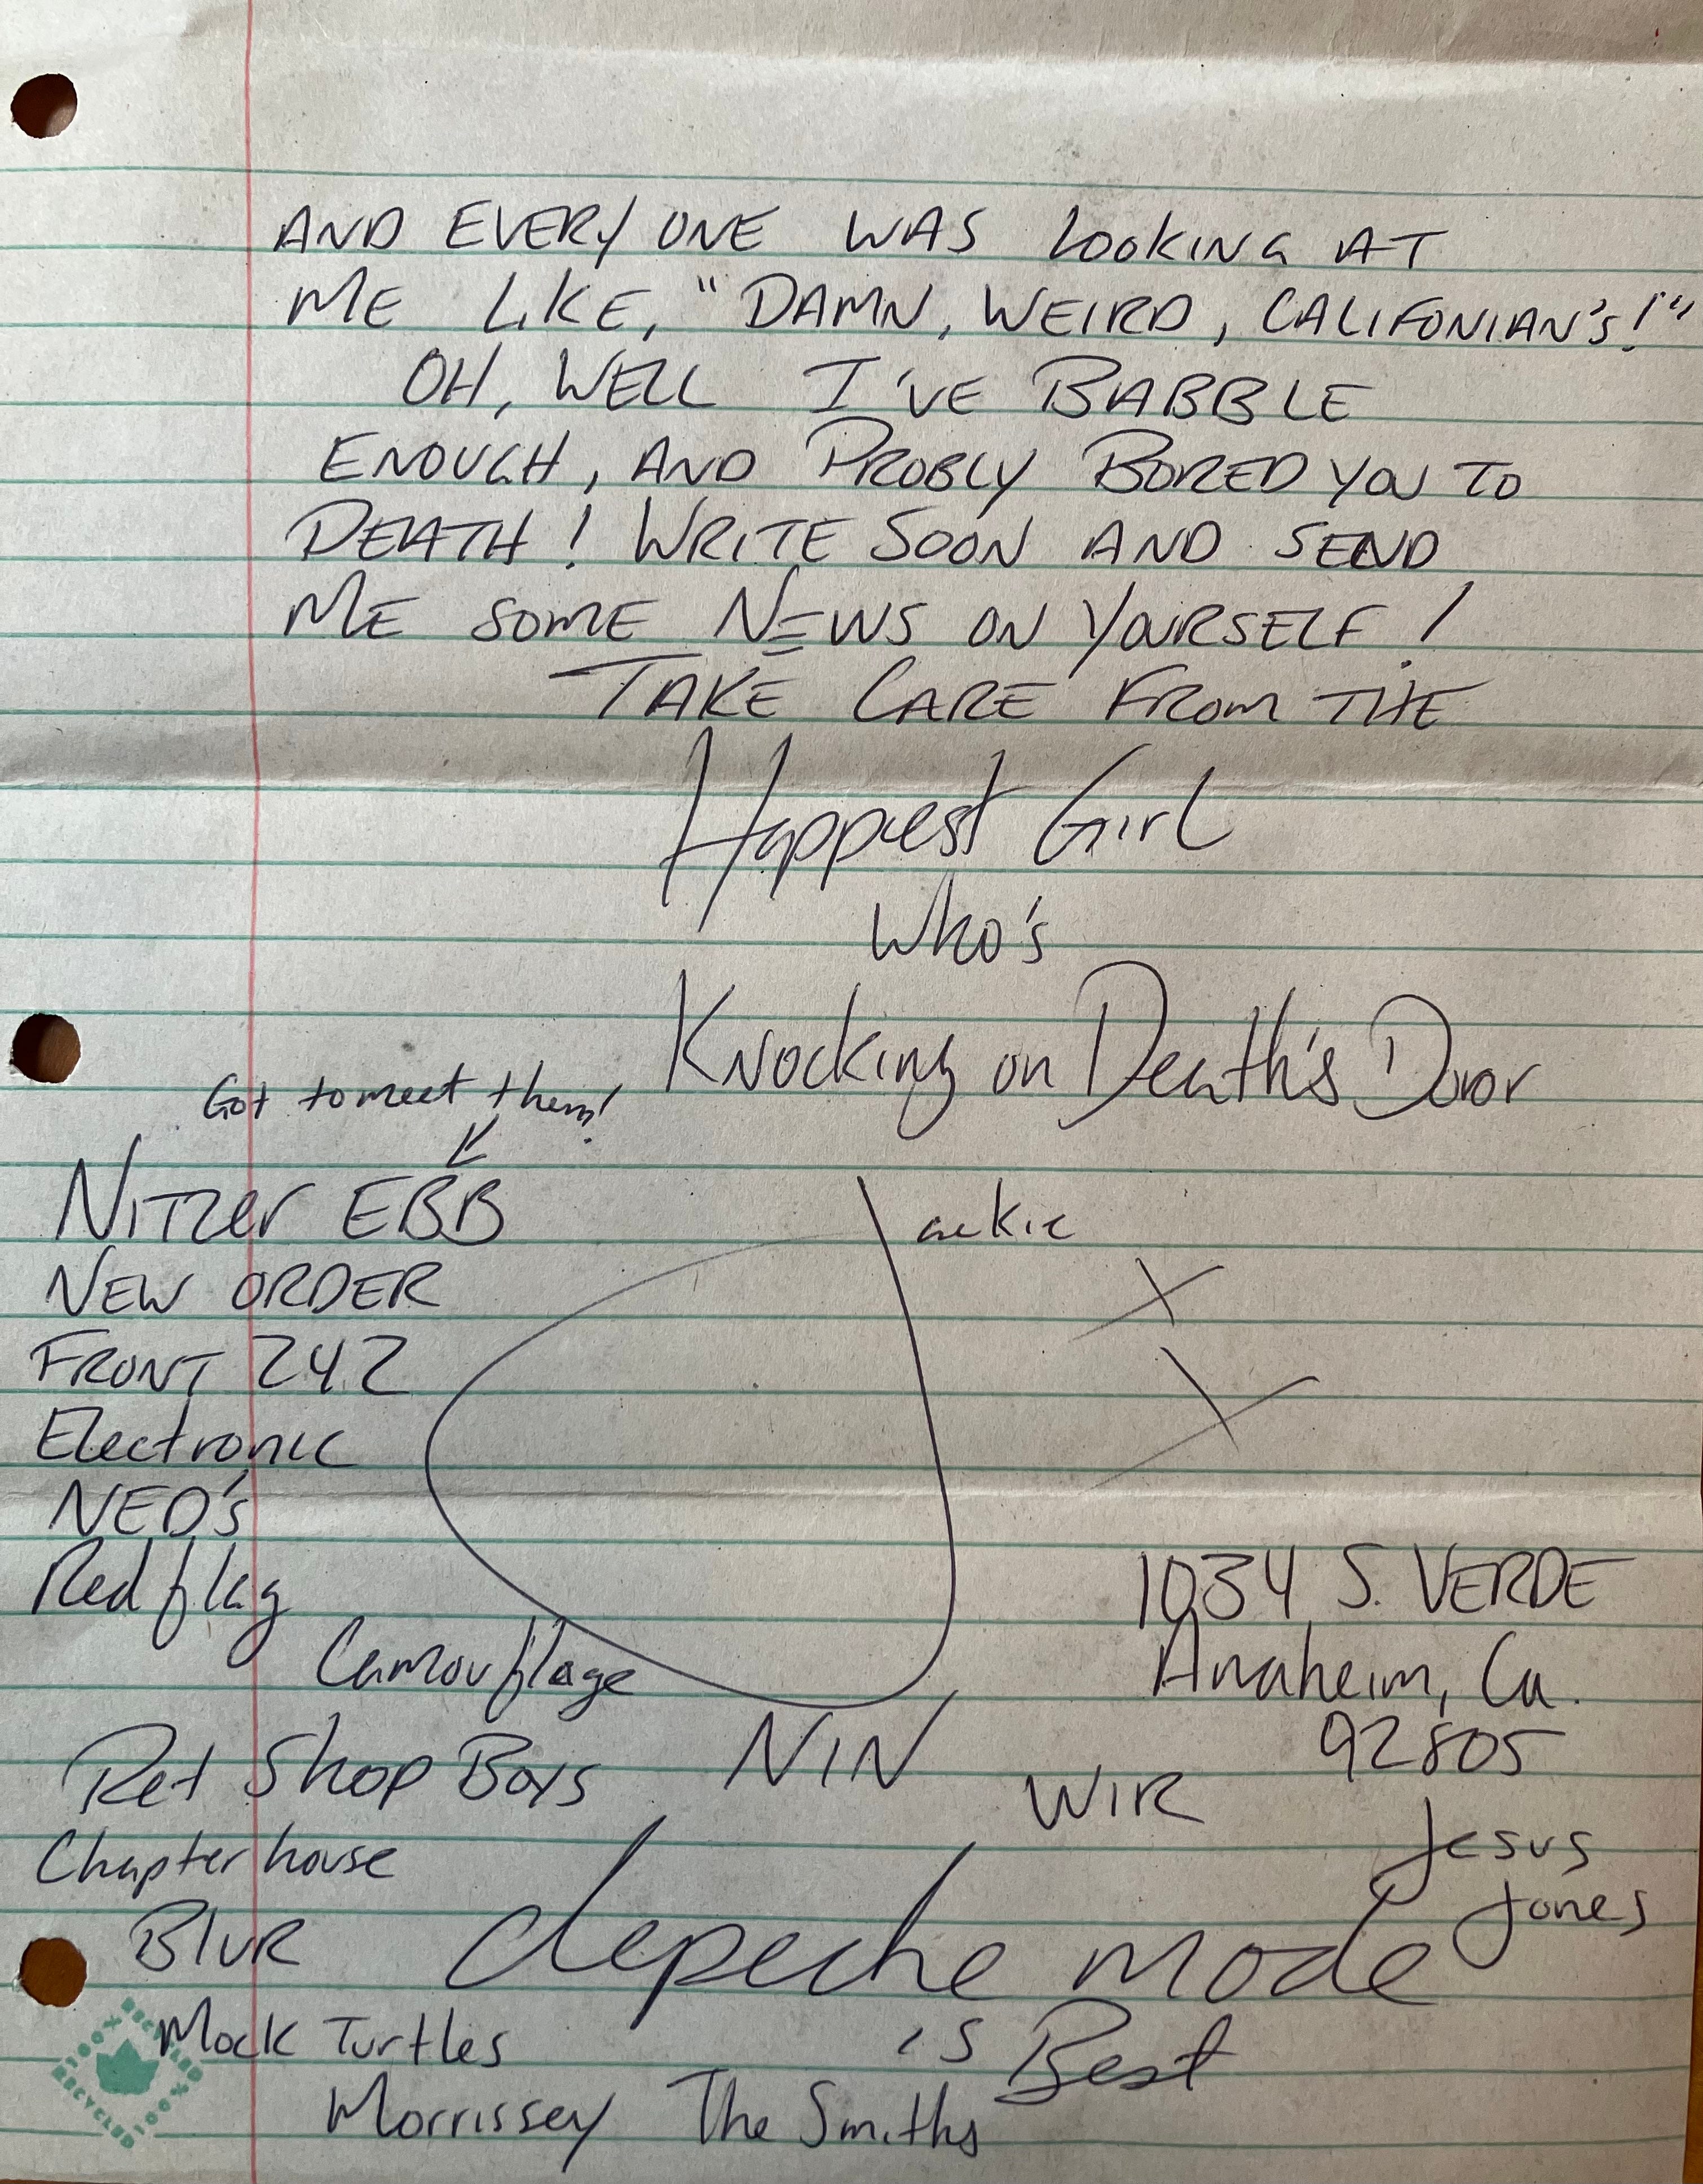 AND EVERYONE WAS LOOKING AT
ME LIKE, "DAMN, WEIRD, CALIFONIAN'S!"
OH, WELL I'VE BABBLE
ENOUGH, AND PROBLY BORED YOU TO
DEATH! WRITE SOON AND SEND
ME SOME NEWS ON YOURSELF!
TAKE CARE FROM THE
Happiest Girl
Who's
Knocking on Death's Door
Got to meet them!
NITZer EBB
Jackie
NEW ORDER
X
FRONT 242
X
Electronic
NED's
Red flag
1034 S. VERDE
Camouflage
Anaheim, Ca.
92805
Pet Shop Boys
NIN
WIR
Jesus
Jones
Chapterhouse
Blur
depeche mode
is Best
Mock Turtles
Morrissey The Smiths
100% RECYCLED 100% RECYCLED